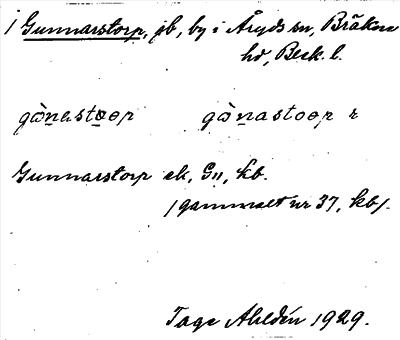 1 Gunnarstorp, jb, by i Åryds sn, Bräkne
hd, Blek. l.
gònastoep gònastoep r
Gunnarstorp ek, G11, kb.
/gammalt nr 37, kb/.
Tage Ahldén 1929.